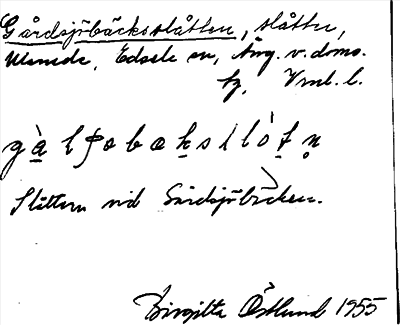 Gårdsjöbäcksslåtten, slåtter,
Utanede, Edsele sn, Ång. v. doms.
Vml. l.
Slåttern vid Gårdsjöbäcken.
Birgitta Östlund 1955